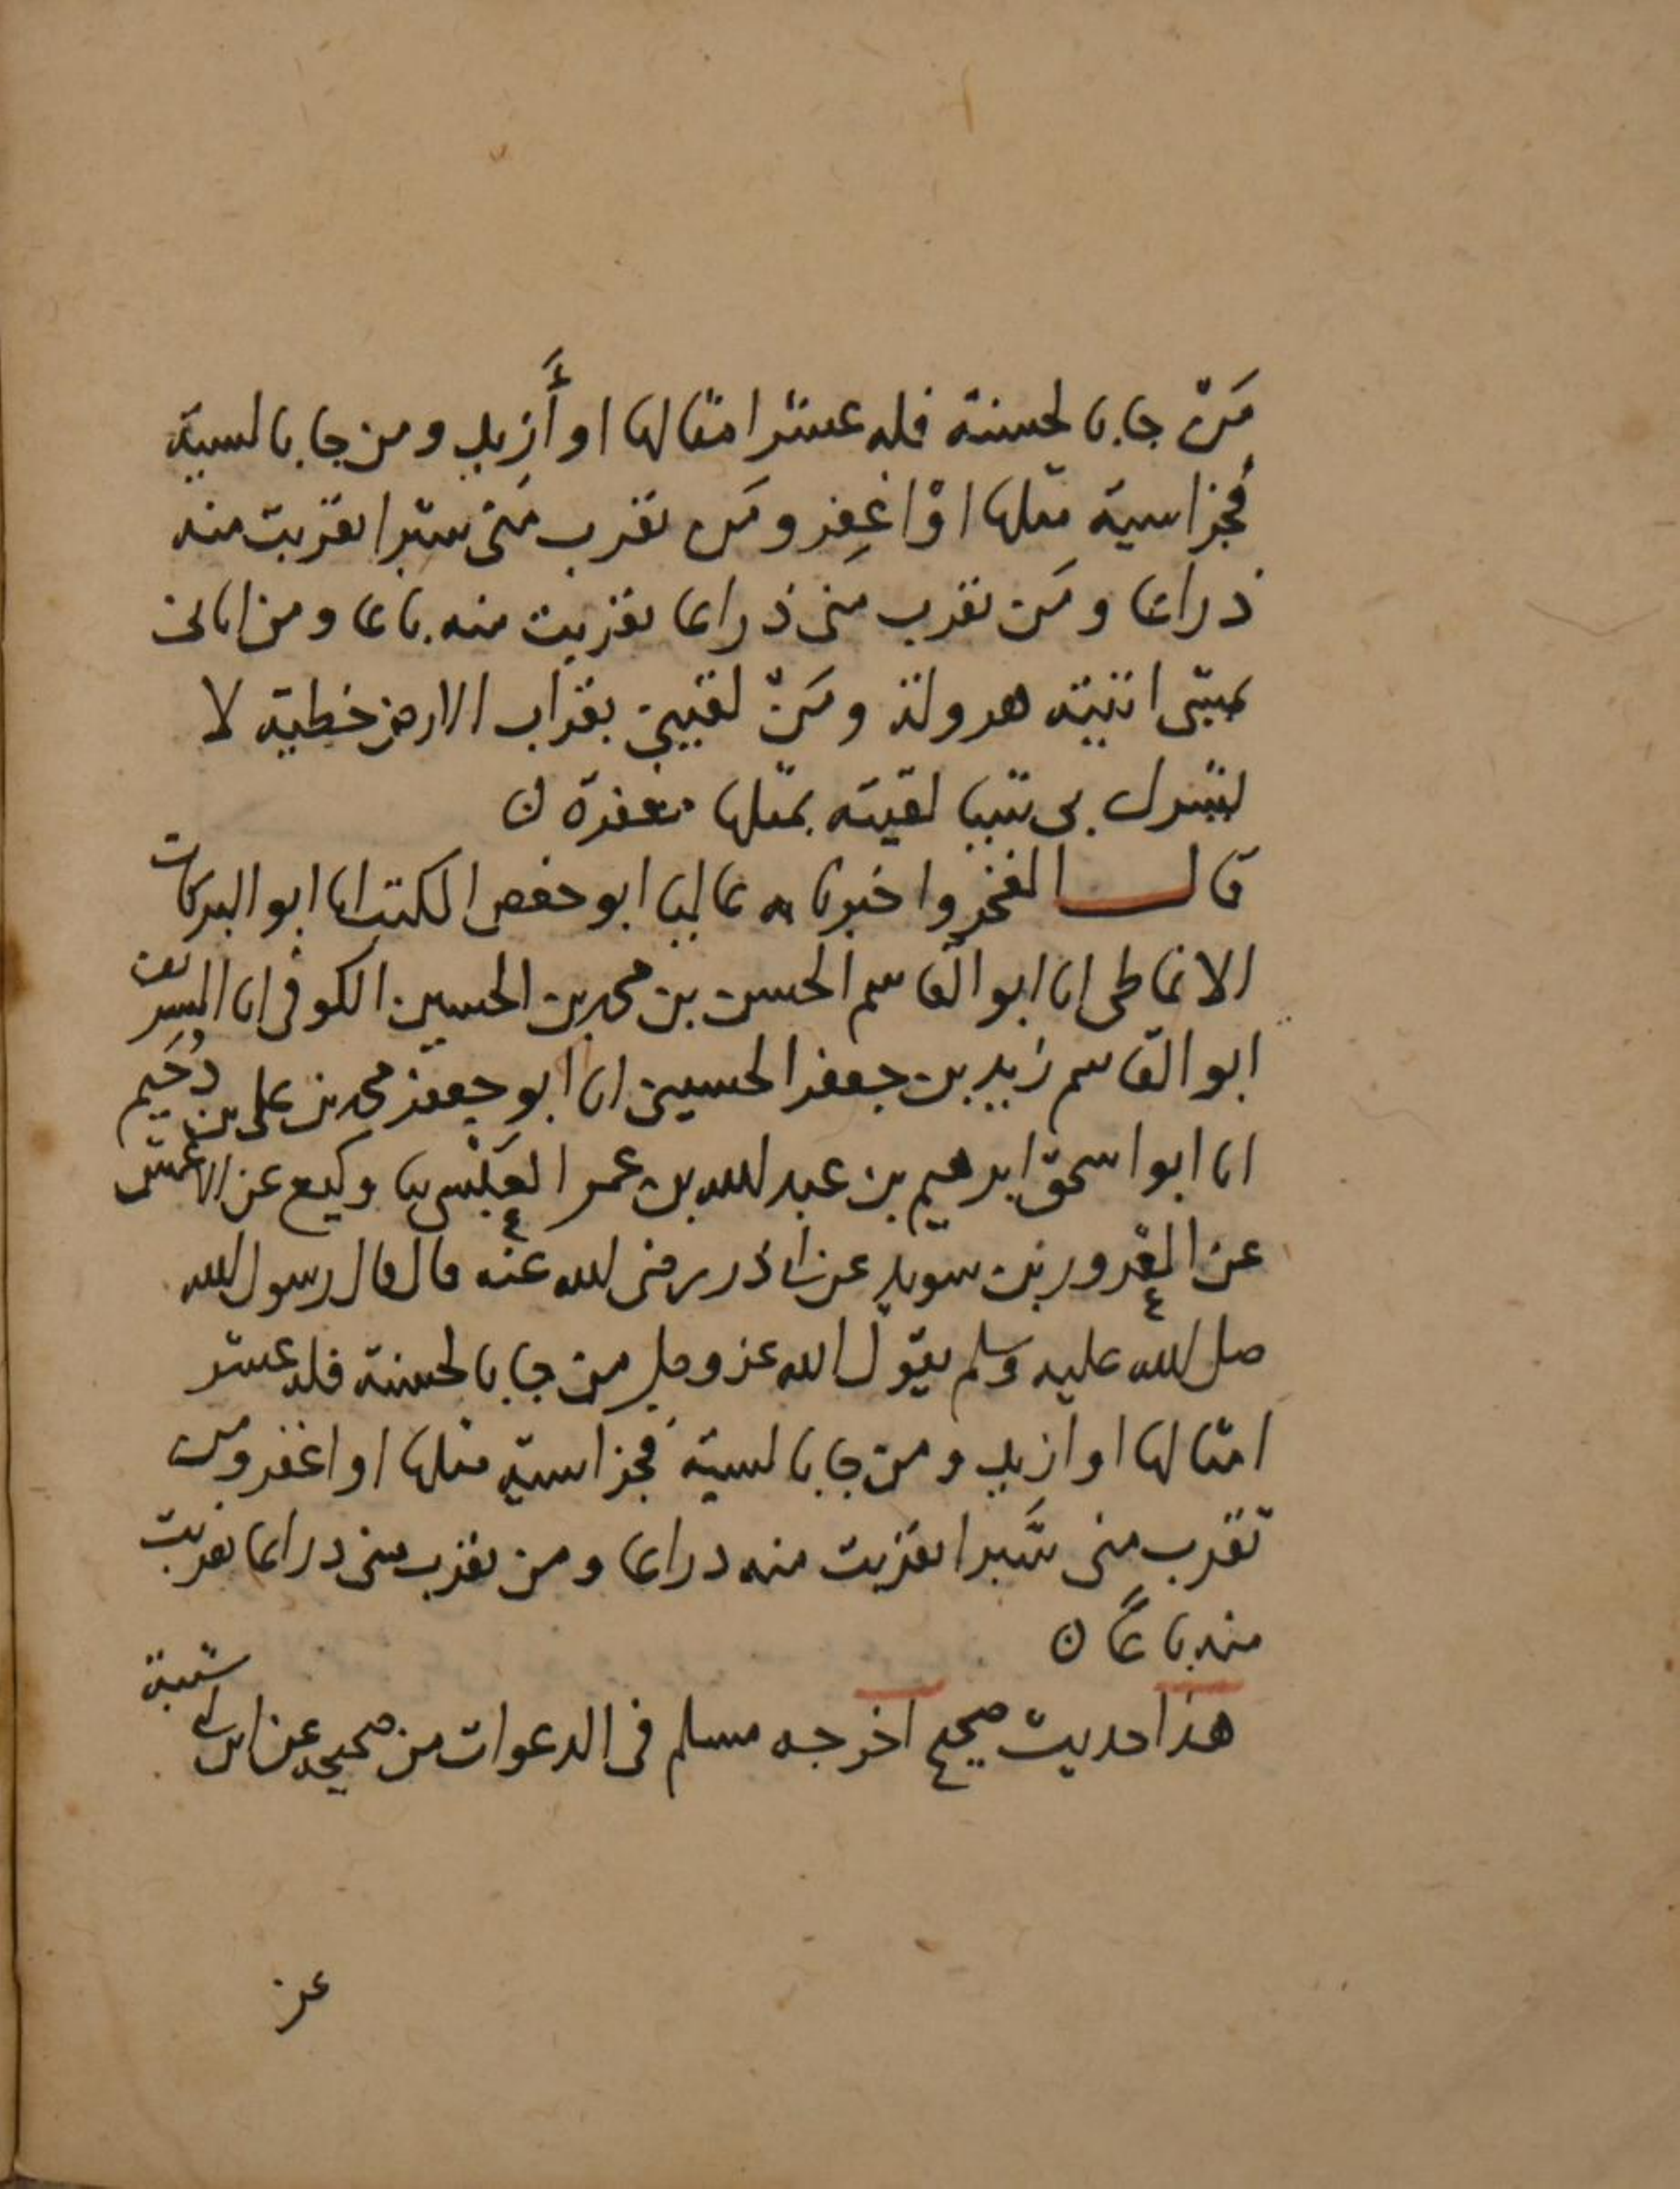 مَنْ جا بالحسنة فله عشر امثالها او أَزيد ومن جا بالسية
فجزا سية مثلها اوْ اغفِر ومَن تقرب مِنى شبرا تقربت منه
ذراعا ومَن تقرب مِنى ذراعا تقربت منه باعا ومن اتانى
يمشى اتيته هرولة ومَنْ لقينى بقراب الارض خطية لا
يشرك بى شيا لقيته بمثلها مغفرة ن
قال الفخر واخبرنا به عاليا ابو حفص المكتب انا ابو البركات
الانماطى انا ابو القاسم الحسن بن محمد بن الحسين الكوفى انا الشريف
ابو القاسم زيد بن جعفر الحسينى انا ابو جعفر محمد بن على بن دُحَيم
انا ابو اسحق ابرهيم بن عبد الله بن عمر العَبْسى ثنا وكيع عن الاعمش
عن المعْرور بن سويد عن ابى ذر رضى الله عنه قال قال رسول الله
صلى الله عليه وسلم يقول الله عز وجل من جا بالحسنة فله عشر
امثالها او ازيد ومن جا بالسية فجزا سية مثلها او اغفر ومن
تقرب منى شَبرا تقربت منه دراعا ومن تقرب منى دراعا تقربت
منه باعًا ن
هذا حديث صحيح اخرجه مسلم فى الدعوات من صحيحه عن ابن ابى شيبة
عن